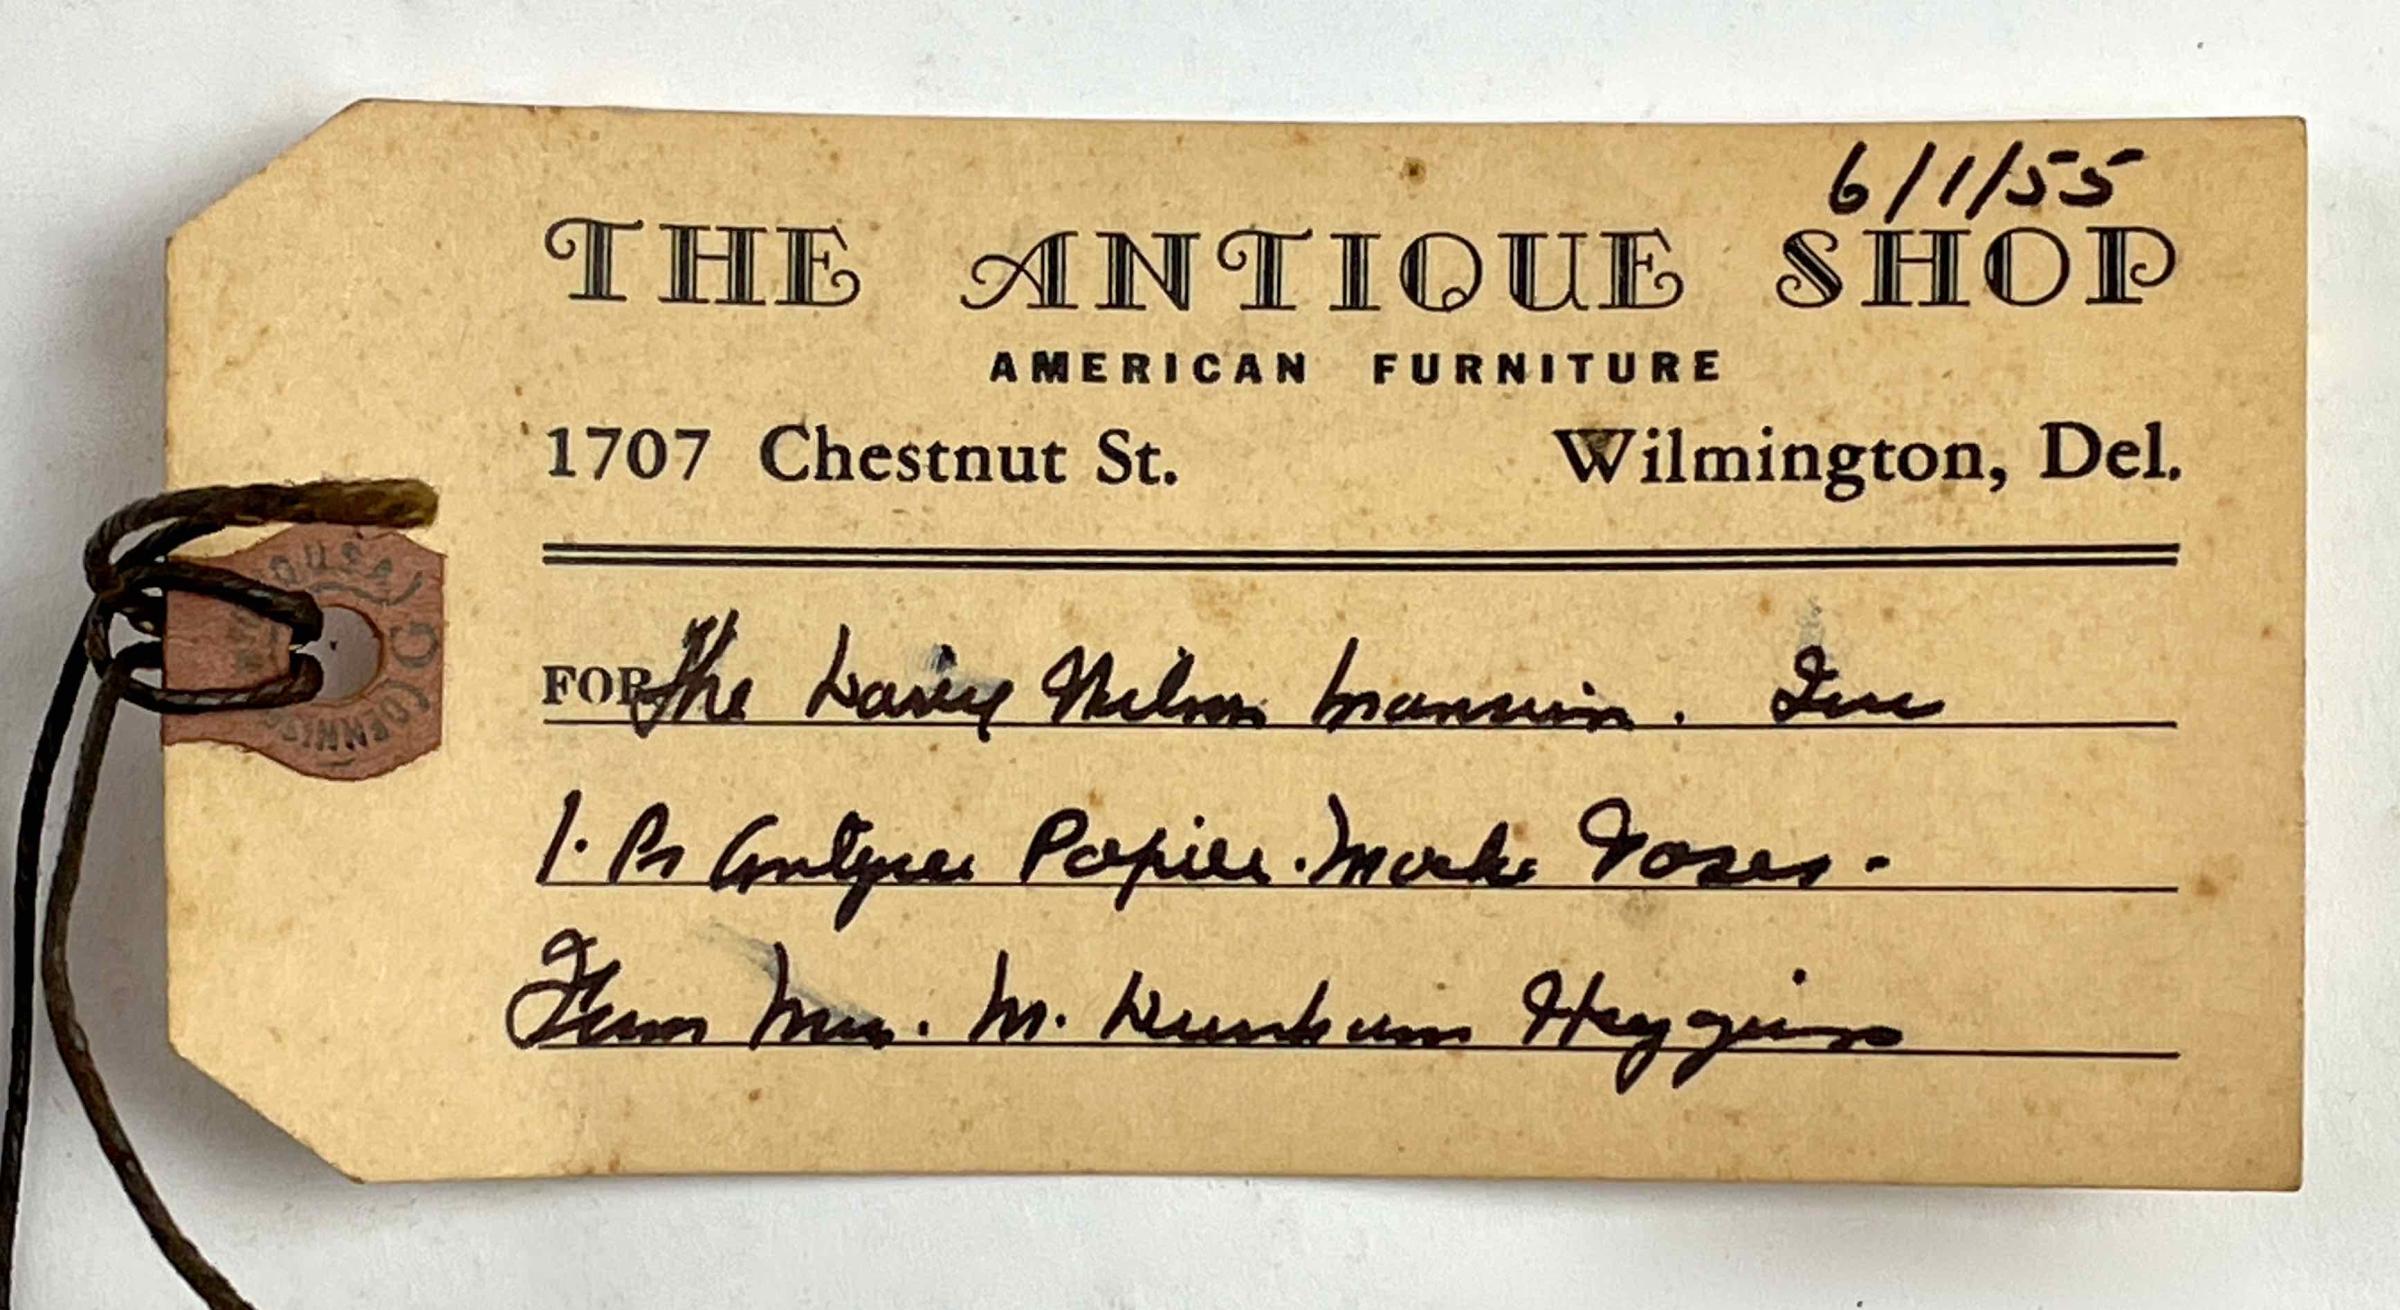 6/1/55
THE ANTIQUE SHOP
AMERICAN FURNITURE
1707 Chestnut St. Wilmington, Del.
FOR The David Wilson Mansion. Inc
1. Pr Antique Papier-Mache Vases.
From Mrs. M. Dunham Higgins